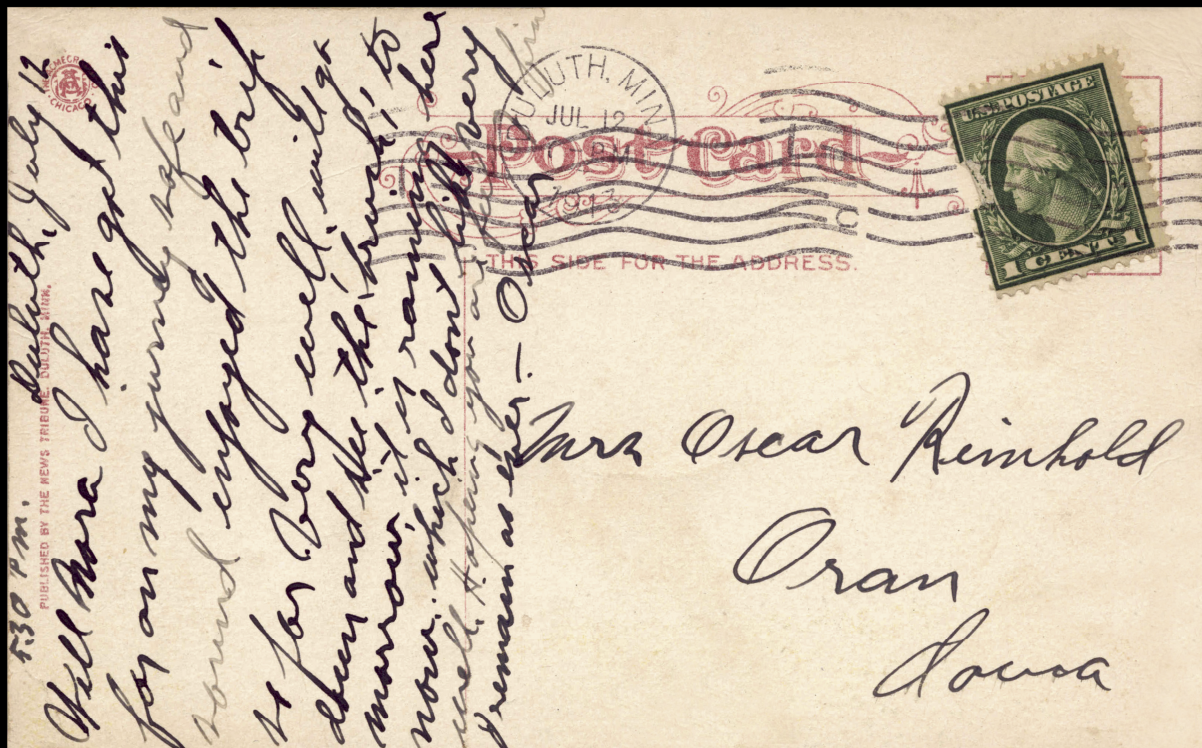 Duluth, July 12
5:30 P.m.
Well Nora I have got this
far on my journey safe and
sound enjoyed the trip
so far very well, will go
down and see the "brush" to
morrow, it is raining here
now, which I dont like very
well. Hoping you are
I remain as ever — Oscar
THE ACMEGRAPH CO.
CHICAGO
PUBLISHED BY THE NEWS TRIBUNE, DULUTH, MINN.
DULUTH, MINN.
JUL 12
1913
C
Post Card
THIS SIDE FOR THE ADDRESS.
U.S. POSTAGE
1 CENT 1
Mrs Oscar Reinhold
Oran
Iowa